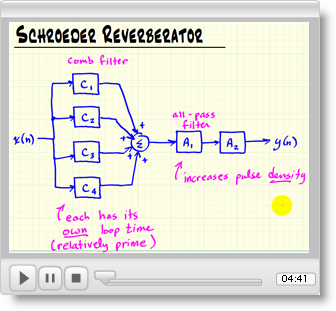 SCHROEDER REVERBERATOR
comb filter
C1
C2
C3
C4
x(n)
+
+
+
+
Σ
all-pass
filter
A1
A2
y(n)
increases pulse density
each has its
own loop time
(relatively prime)
04:41